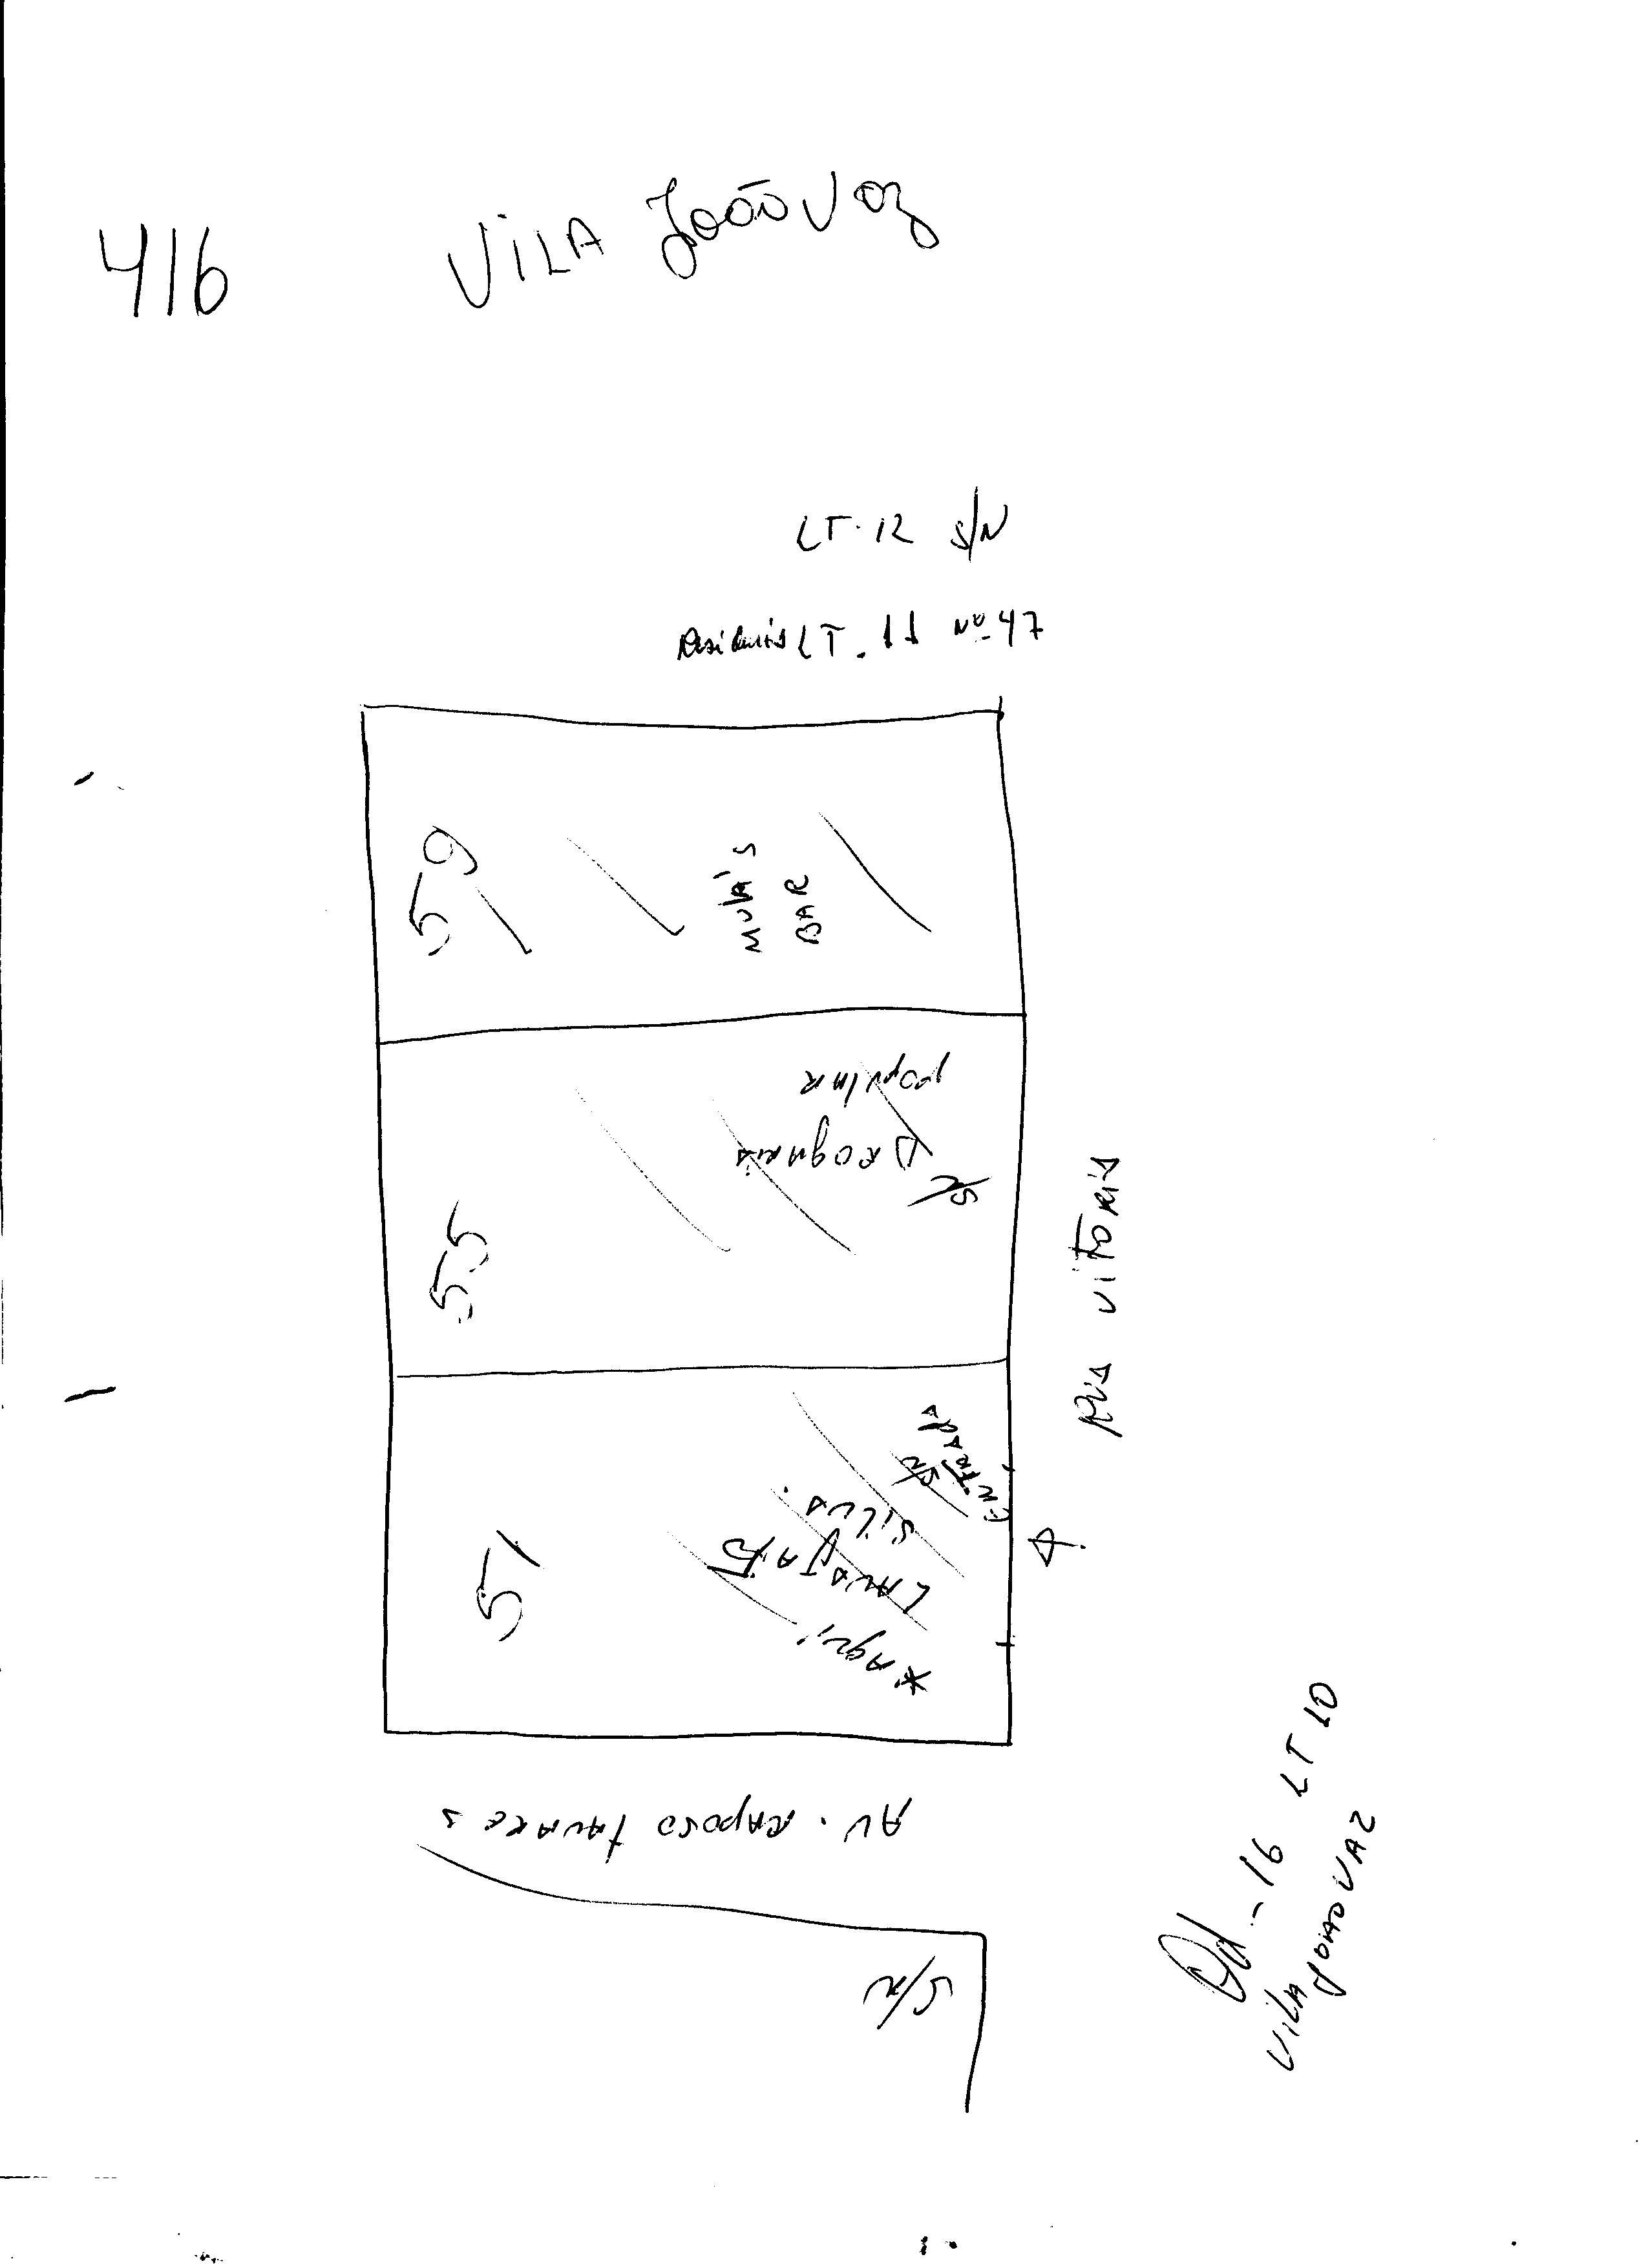 416
VILA João Vaz
LT. 12 S/N
LT. 11 Nº 47
59
BAR
Popular
Drogaria
S/N
55
Rua Vitoria
Entrada
S/N
Silva
LAVA JATO
51
AV. Raposo Tavares
S/N
Qd - 16 LT 10
Vila João Vaz